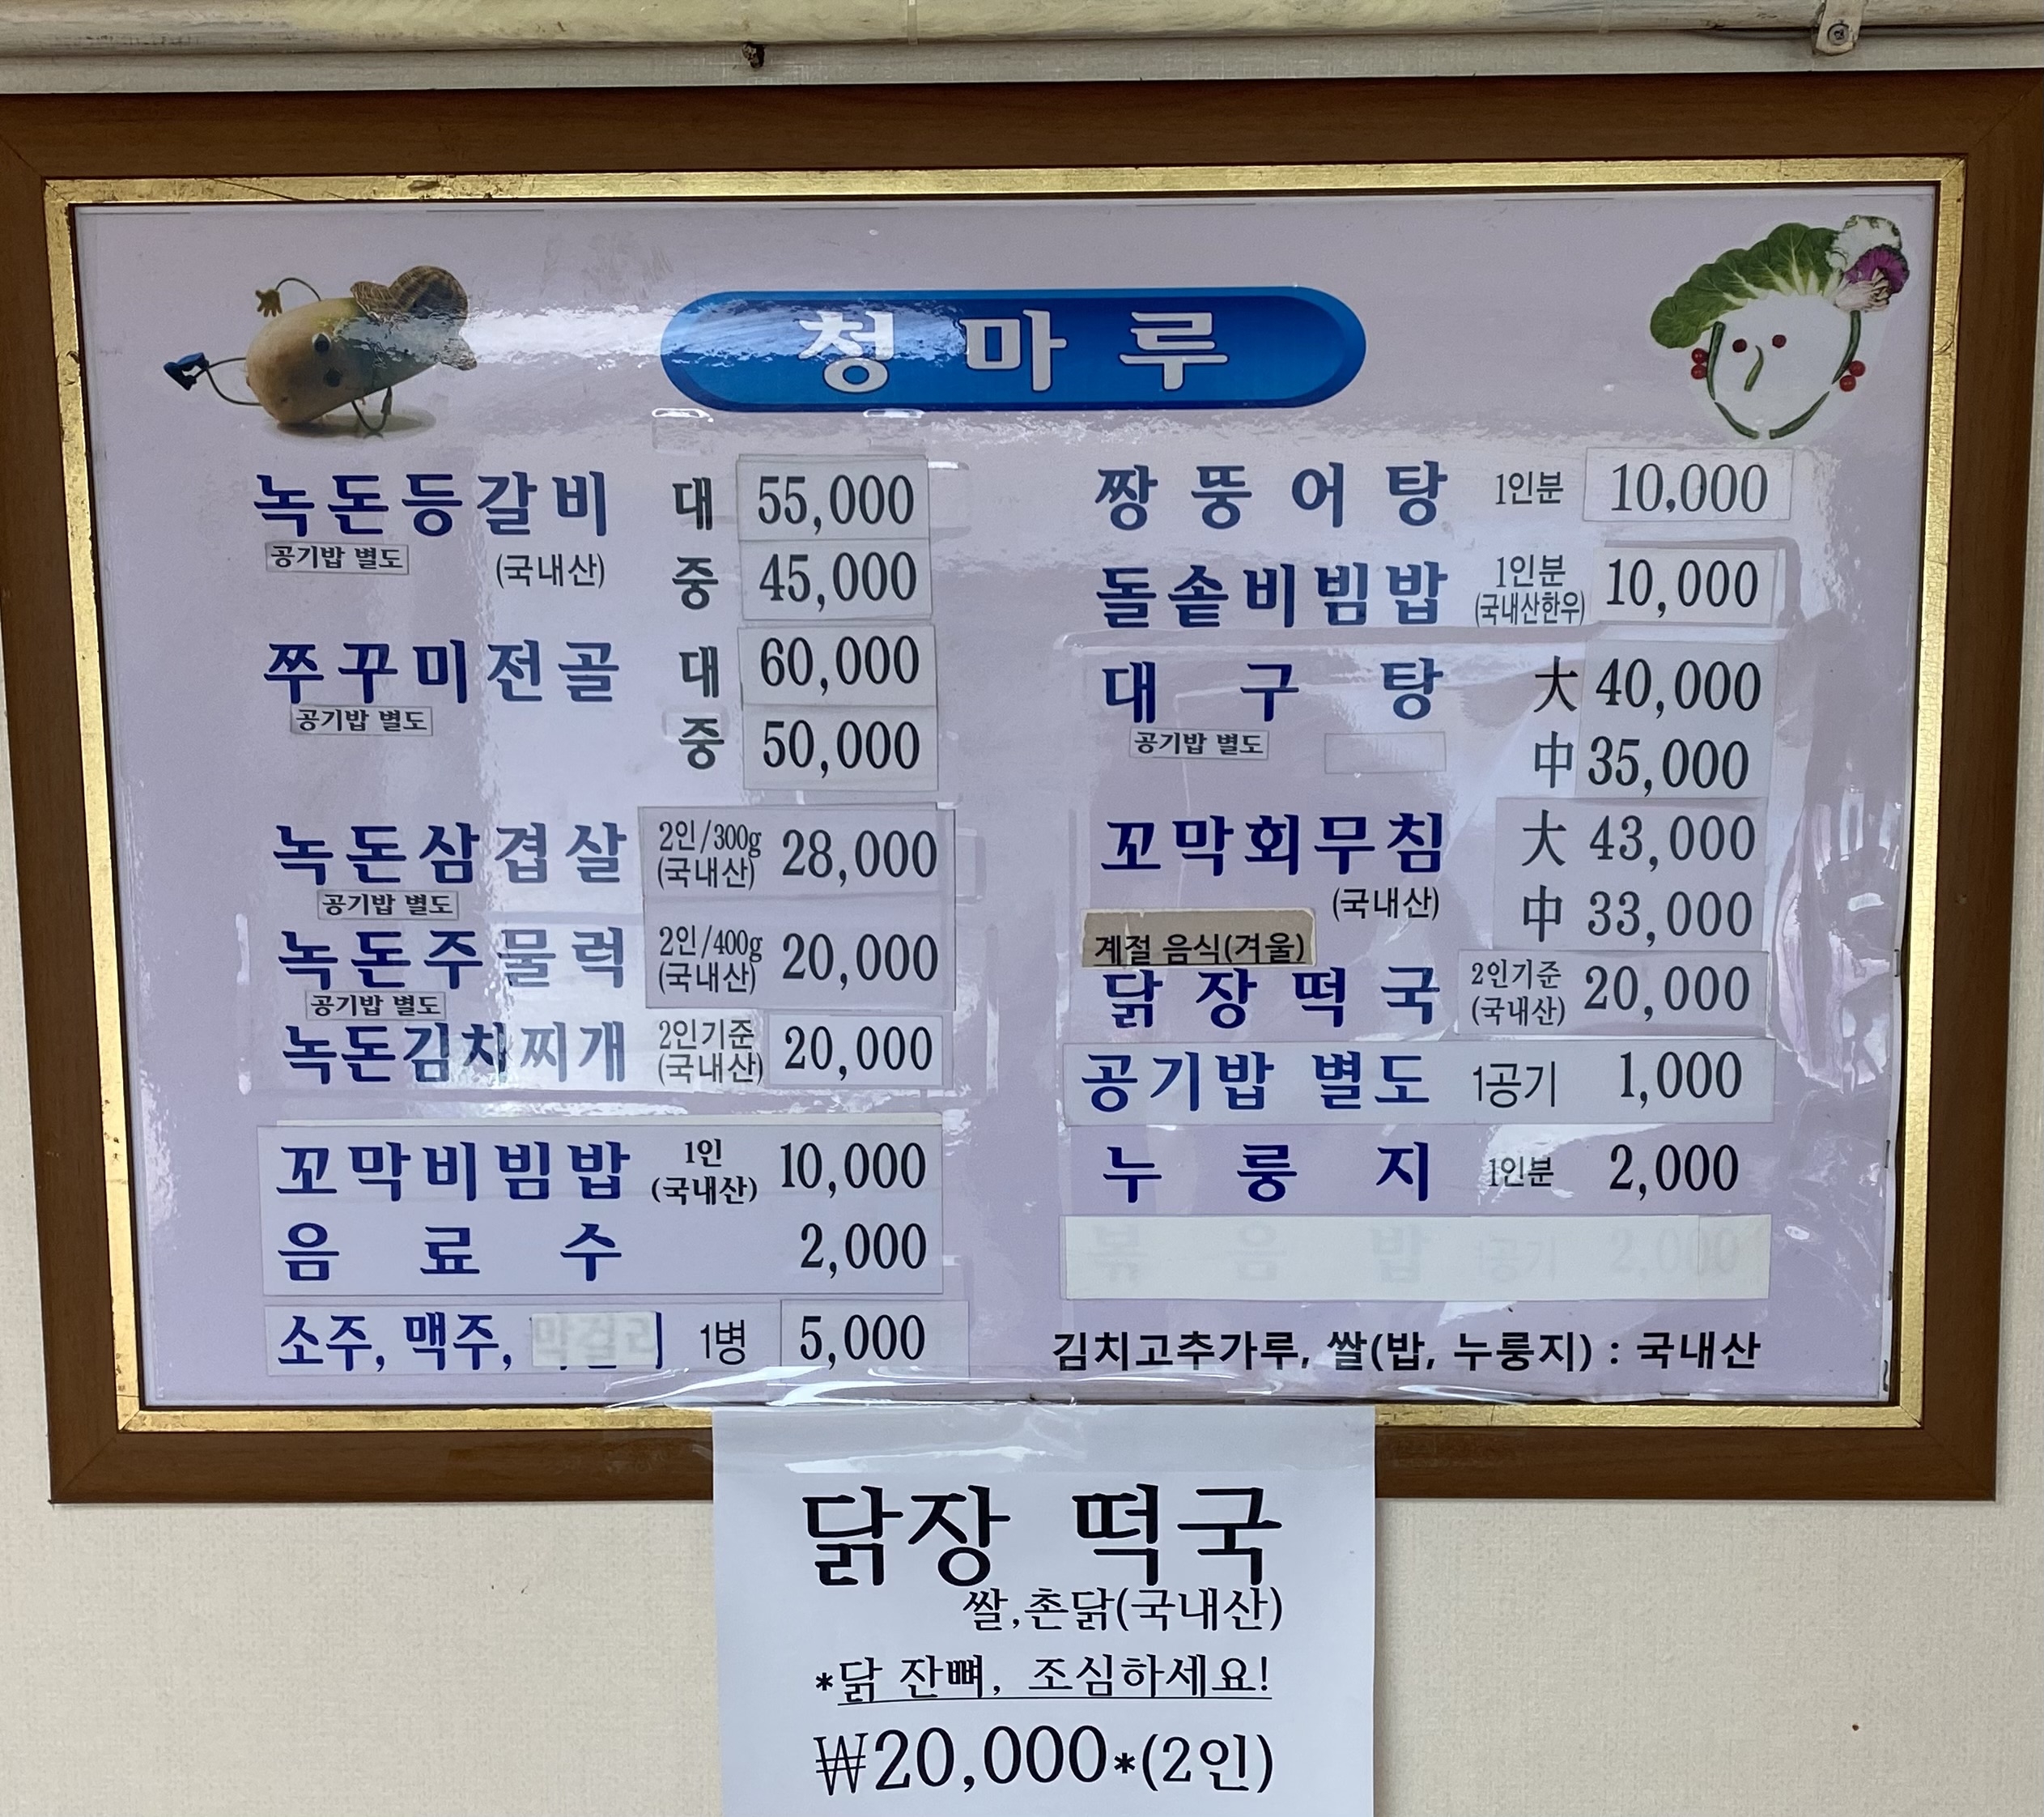 청마루
녹돈등갈비 대 55,000
공기밥 별도 (국내산) 중 45,000
쭈꾸미전골 대 60,000
공기밥 별도 중 50,000
녹돈삼겹살 2인/300g (국내산) 28,000
공기밥 별도
녹돈주물럭 2인/400g (국내산) 20,000
공기밥 별도
녹돈김치찌개 2인기준 (국내산) 20,000
꼬막비빔밥 1인 (국내산) 10,000
음료수 2,000
소주, 맥주, 막걸리 1병 5,000
짱뚱어탕 1인분 10,000
돌솥비빔밥 1인분 (국내산한우) 10,000
대구탕 大 40,000
공기밥 별도 中 35,000
꼬막회무침 大 43,000
(국내산) 中 33,000
계절 음식(겨울)
닭장떡국 2인기준 (국내산) 20,000
공기밥 별도 1공기 1,000
누룽지 1인분 2,000
볶음밥 1공기 2,000
김치고추가루, 쌀(밥, 누룽지) : 국내산
닭장 떡국
쌀,촌닭(국내산)
*닭 잔뼈, 조심하세요!
₩20,000*(2인)